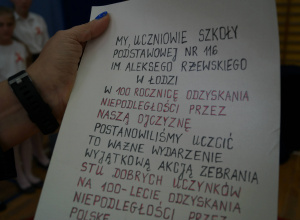 MY, UCZNIOWIE SZKOŁY
PODSTAWOWEJ NR 116
IM ALEKSEGO RŻEWSKIEGO
W ŁODZI
W 100 ROCZNICĘ ODZYSKANIA
NIEPODLEGŁOŚCI PRZEZ
NASZĄ OJCZYZNĘ
POSTANOWILIŚMY UCZCIĆ
TO WAŻNE WYDARZENIE
WYJĄTKOWĄ AKCJĄ ZEBRANIA
STU DOBRYCH UCZYNKÓW
NA 100-LECIE ODZYSKANIA
NIEPODLEGŁOŚCI PRZEZ
POLSKĘ